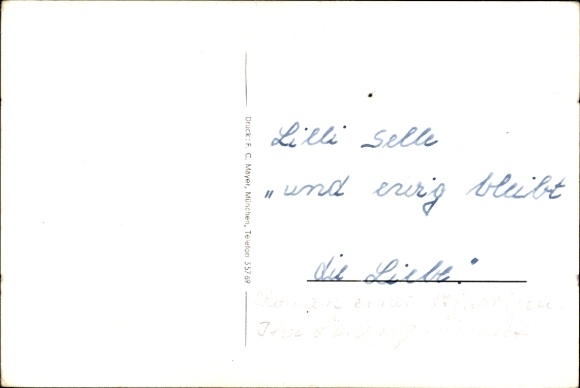 Druck: F. C. Mayer, München, Telefon 35769
Lilli Selle
„und ewig bleibt
die Liebe."
Roman einer
Ihr